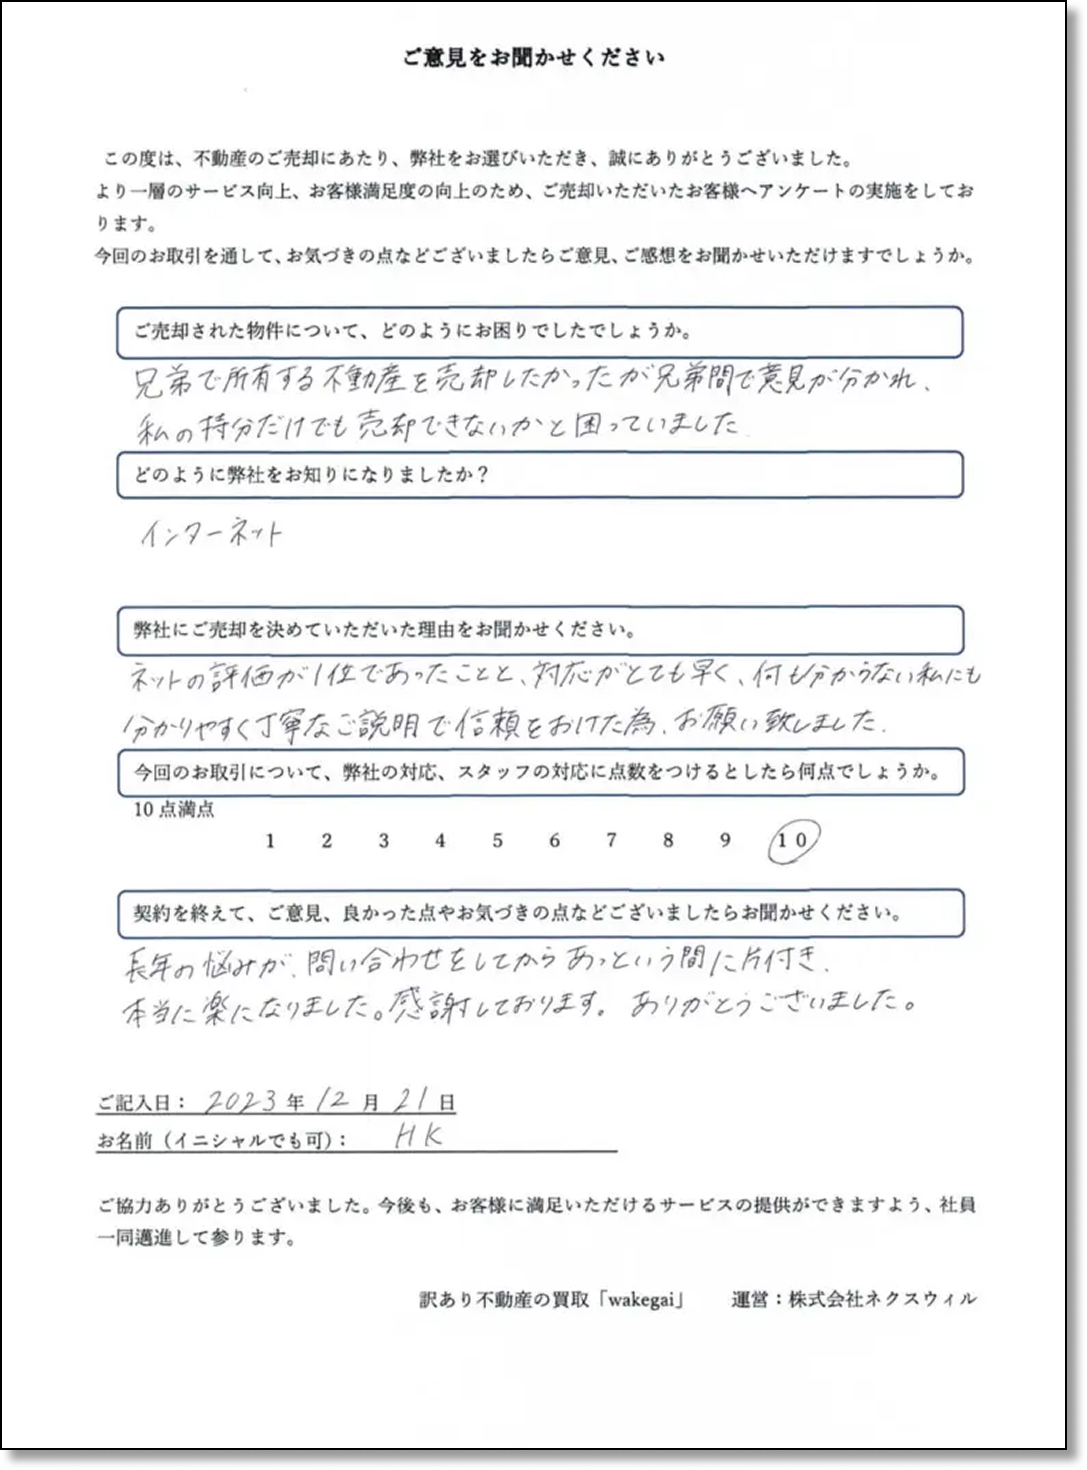 ご意見をお聞かせください
この度は、不動産のご売却にあたり、弊社をお選びいただき、誠にありがとうございました。
より一層のサービス向上、お客様満足度の向上のため、ご売却いただいたお客様へアンケートの実施をしてお
ります。
今回のお取引を通して、お気づきの点などございましたらご意見、ご感想をお聞かせいただけますでしょうか。
ご売却された物件について、どのようにお困りでしたでしょうか。
兄弟で所有する不動産を売却したかったが兄弟間で意見が分かれ、
私の持分だけでも売却できないかと困っていました
どのように弊社をお知りになりましたか？
インターネット
弊社にご売却を決めていただいた理由をお聞かせください。
ネットの評価が1位であったことと、対応がとても早く、何も分からない私にも
分かりやすく丁寧なご説明で信頼をおけた為、お願い致しました.
今回のお取引について、弊社の対応、スタッフの対応に点数をつけるとしたら何点でしょうか。
10 点満点
1 2 3 4 5 6 7 8 9 10
契約を終えて、ご意見、良かった点やお気づきの点などございましたらお聞かせください。
長年の悩みが、問い合わせをしてからあっという間に片付き、
本当に楽になりました。感謝しております。ありがとうございました。
ご記入日： 2023 年 12 月 21 日
お名前（イニシャルでも可）： HK
ご協力ありがとうございました。今後も、お客様に満足いただけるサービスの提供ができますよう、社員
一同邁進して参ります。
訳あり不動産の買取「wakegai」 運営：株式会社ネクスウィル